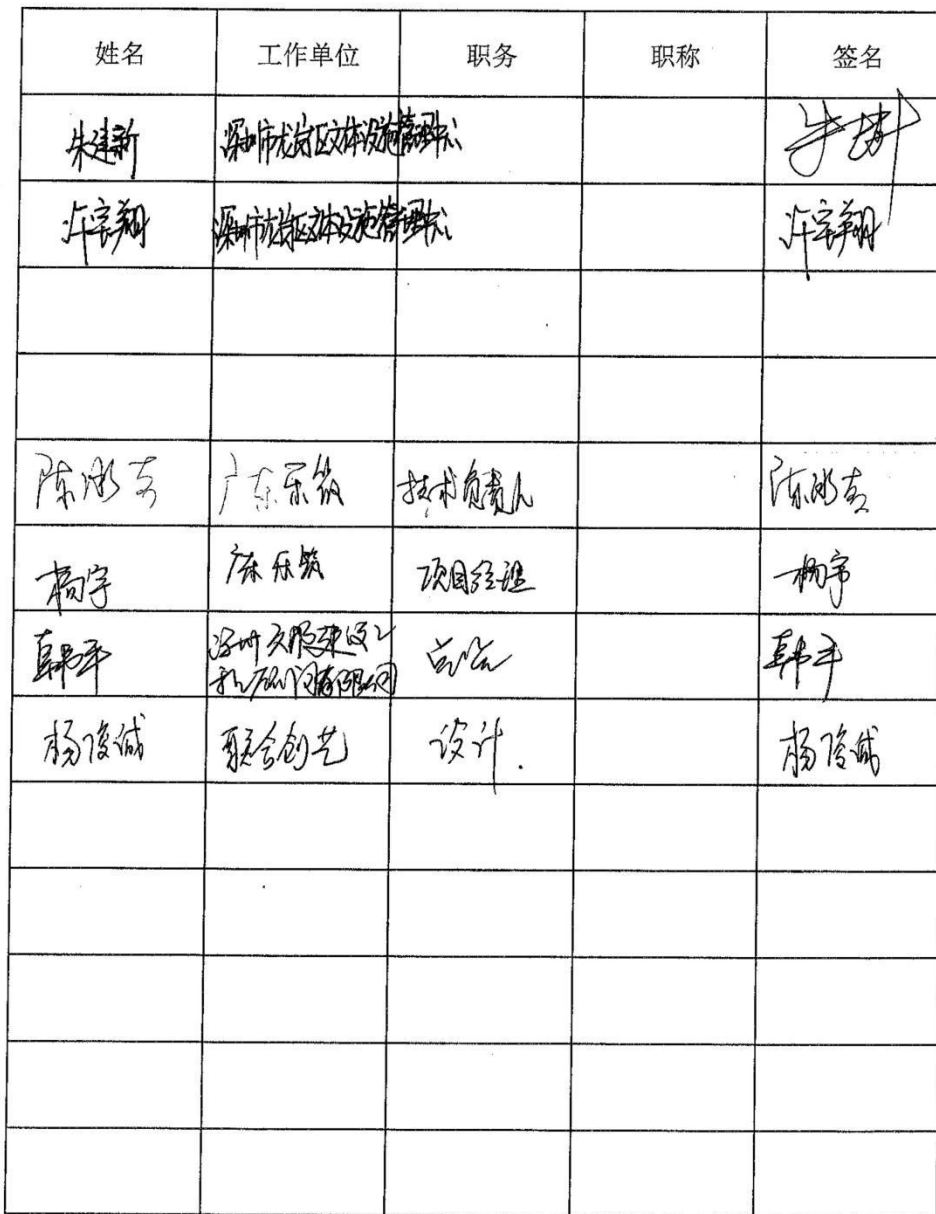 姓名 工作单位 职务 职称 签名
朱建新 深圳市龙岗区文体设施管理中心
许宗翔 深圳市龙岗区文体设施管理中心 许宗翔
陈 广东乐筑 技术负责人 陈
杨宇 广东乐筑 项目经理 杨宇
韩平 深圳 有限公司 韩平
杨俊诚 联合创艺 设计. 杨俊诚